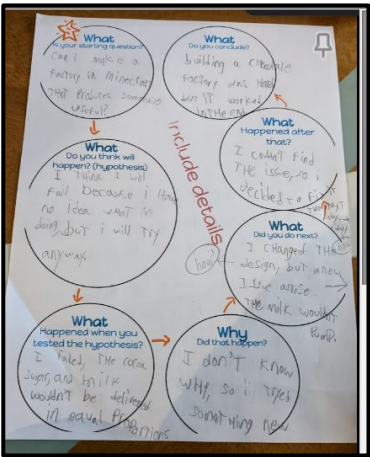 What
Is your starting question?
Can I make a
factory in minecraft
THAT Produces something
useful?
What
Do you think will
happen? (hypothesis)
I THINK I will
Fail because i Have
no Idea what im
doing, but i will TRY
anyway.
What
Happened when you
tested the hypothesis?
I failed, THE cocoa
Sugar, and milk
wouldn't be delivered
in equal ProPortions
Why
Did that happen?
I don't know
WHY, so i tryed
something new
What
Did you do next?
I changed THE
design, but a new
Issue arose
THE milk wouldn't
Pump.
how?
What
Happened after
that?
I couldn't Find
THE issue, so i
decided to
What
Do you conclude?
building a
factory was Hard
but IT worked
In the end
Include details